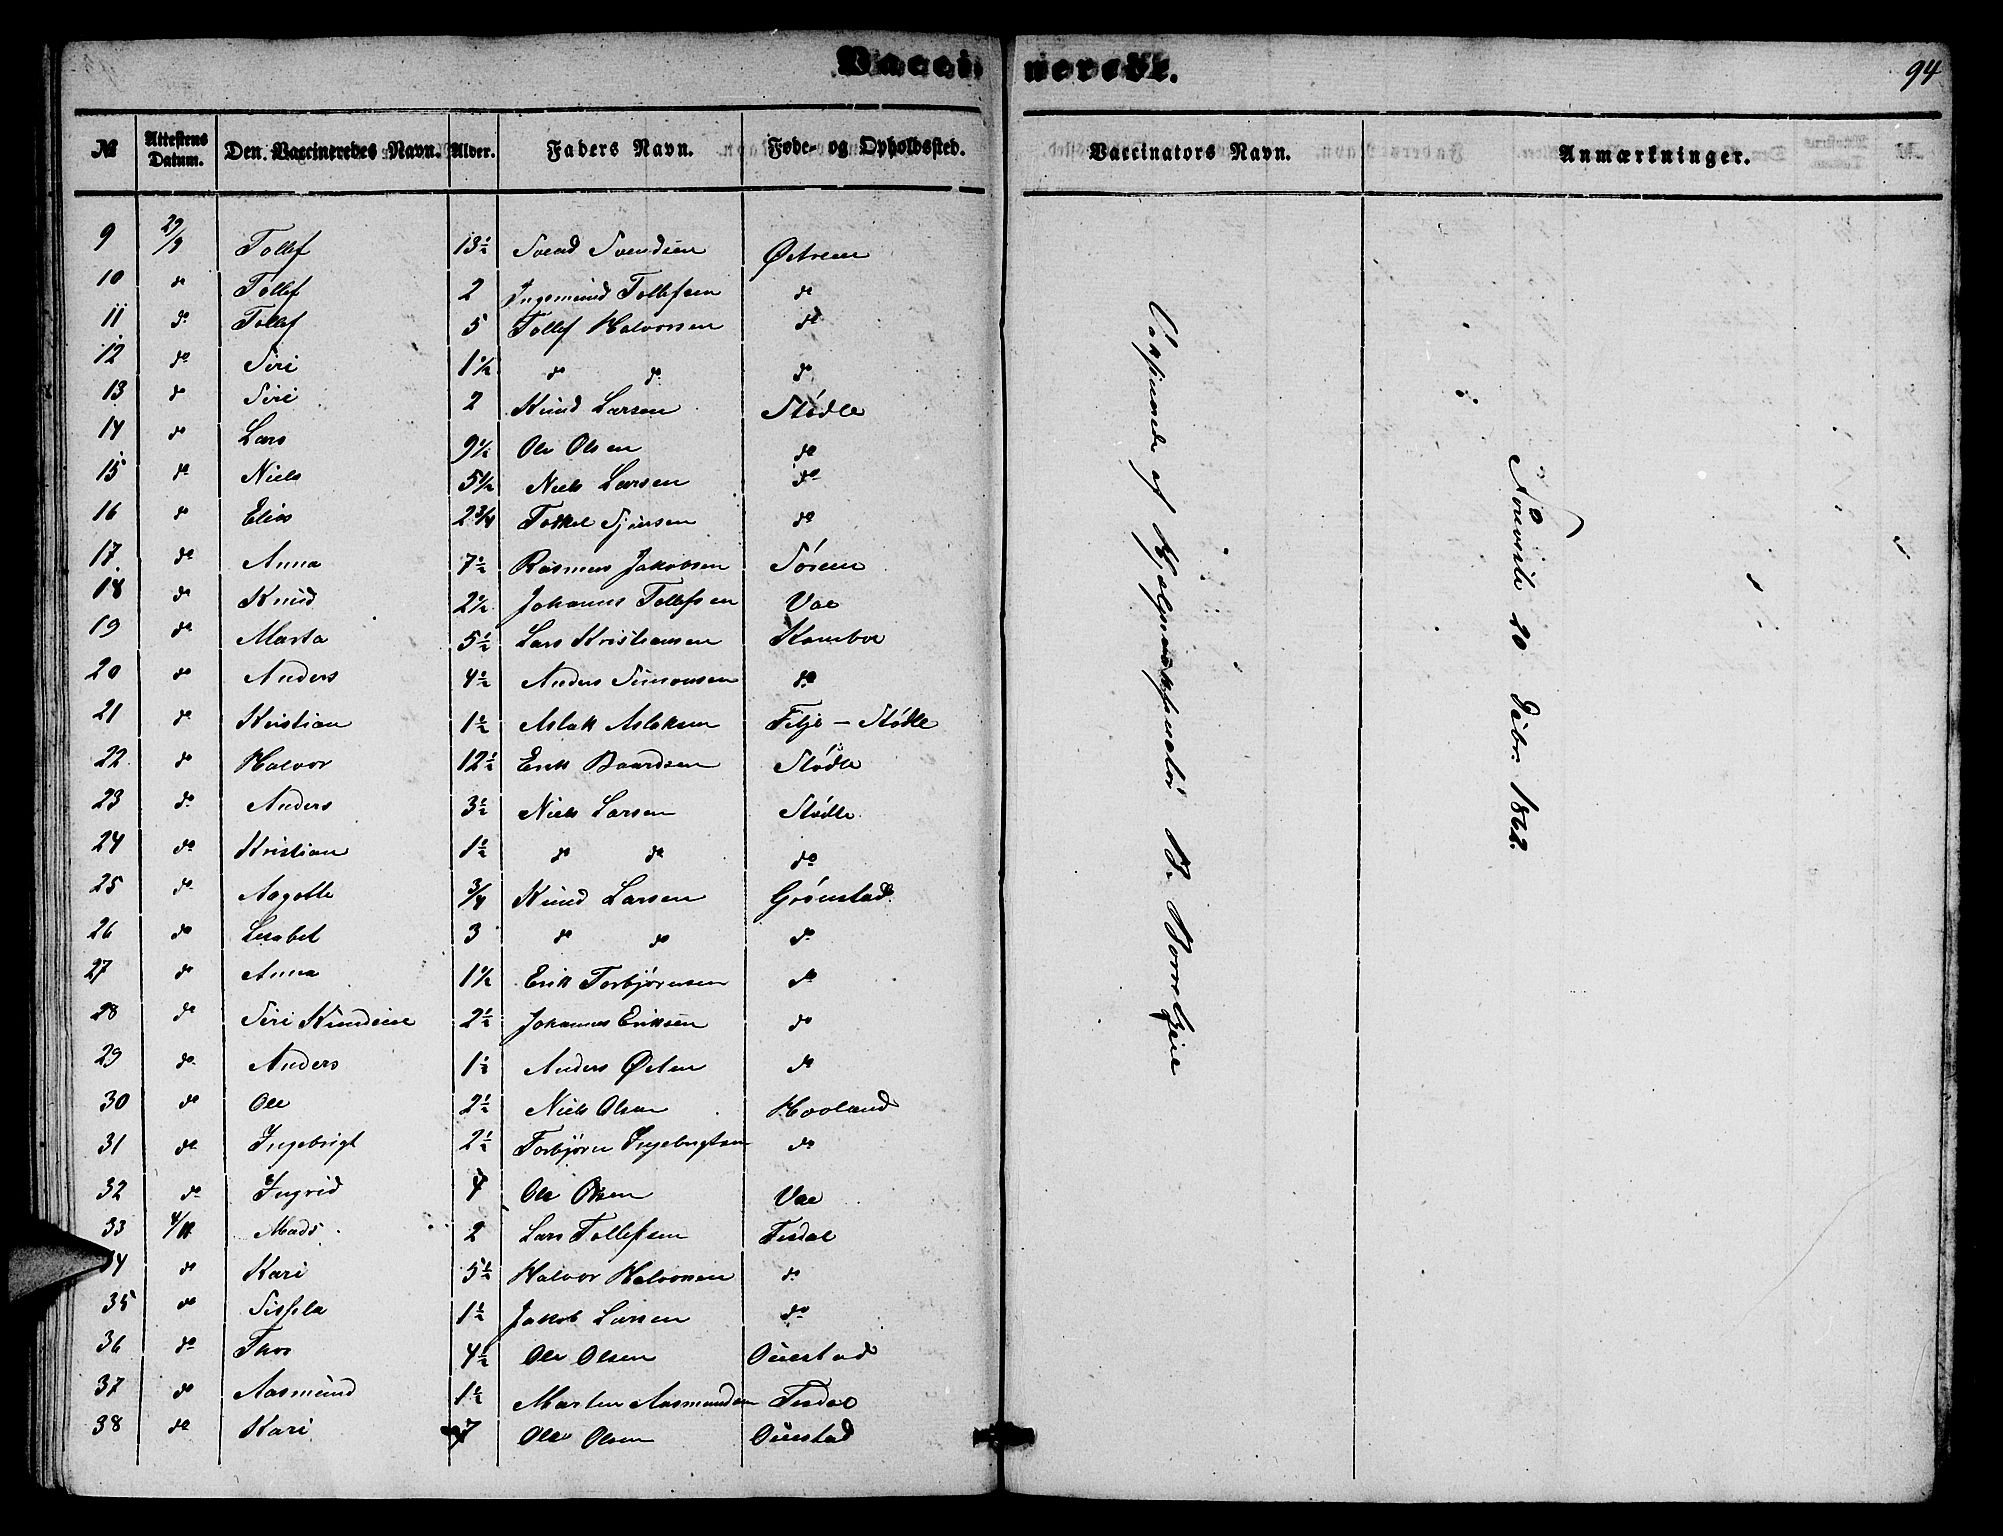 Vaccinerede.
94
№ Attestens Datum. Den Vaccineredes Navn. Alder. Faders Navn. Føde- og Opholdssted. Vaccinators Navn. Anmærkninger.
9 29/9 Tollef 13½ Svend Svendsen Østrem
10 do Tollef 2 Ingemund Tollefsen do
11 do Tollef 5 Tollef Halvorsen do
12 do Siri 1½ do do do
13 do Siri 2 Knud Larsen Stødle
14 do Lars 9½ Ole Olsen do
15 do Niels 5½ Niels Larsen do
16 do Elias 2¾ do
17 do Anna 7½ Rasmus Jakobsen Sørem
18 do Knud 2½ Johannes Tollefsen Vae
19 do Marta 5½ Lars Kristiansen Kambo
20 do Anders 4½ Anders Simonsen do
21 do Kristian 1½ Aslak Aslaksen Fitje – Stødle
22 do Halvor 12½ Erik Baardsen Stødle
23 do Anders 3½ Niels Larsen Stødle
24 do Kristian 1½ do do do
25 do Aagotte 3/4 Knud Larsen Grønstad
26 do Lisabet 3 do do do
27 do Anna 1½ Erik Torbjørnsen do
28 do Siri Kundine 2½ Johannes Eriksen do
29 do Anders 1½ Anders Østen do
30 do Ole 2½ Niels Olsen Hovland
31 do Ingebrigt 2½ Torbjørn Ingebrigtsen do
32 do Ingrid 4 Ole Olsen Vae
33 4/11 Mads 2 Lars Tollefsen Tesdal
34 do Kari 5½ Halvor Halvorsen do
35 do Sissela 1½ Jakob Larsen do
36 do Thor 4½ Ole Olsen Øuestad
37 do Aasmund 1½ Morten Aasmundsen Tesdal
38 do Kari 7 Ole Olsen Øuestad
Vaksinerede af Hjælpevaksinatør B. Borrebjeie
20 1862.